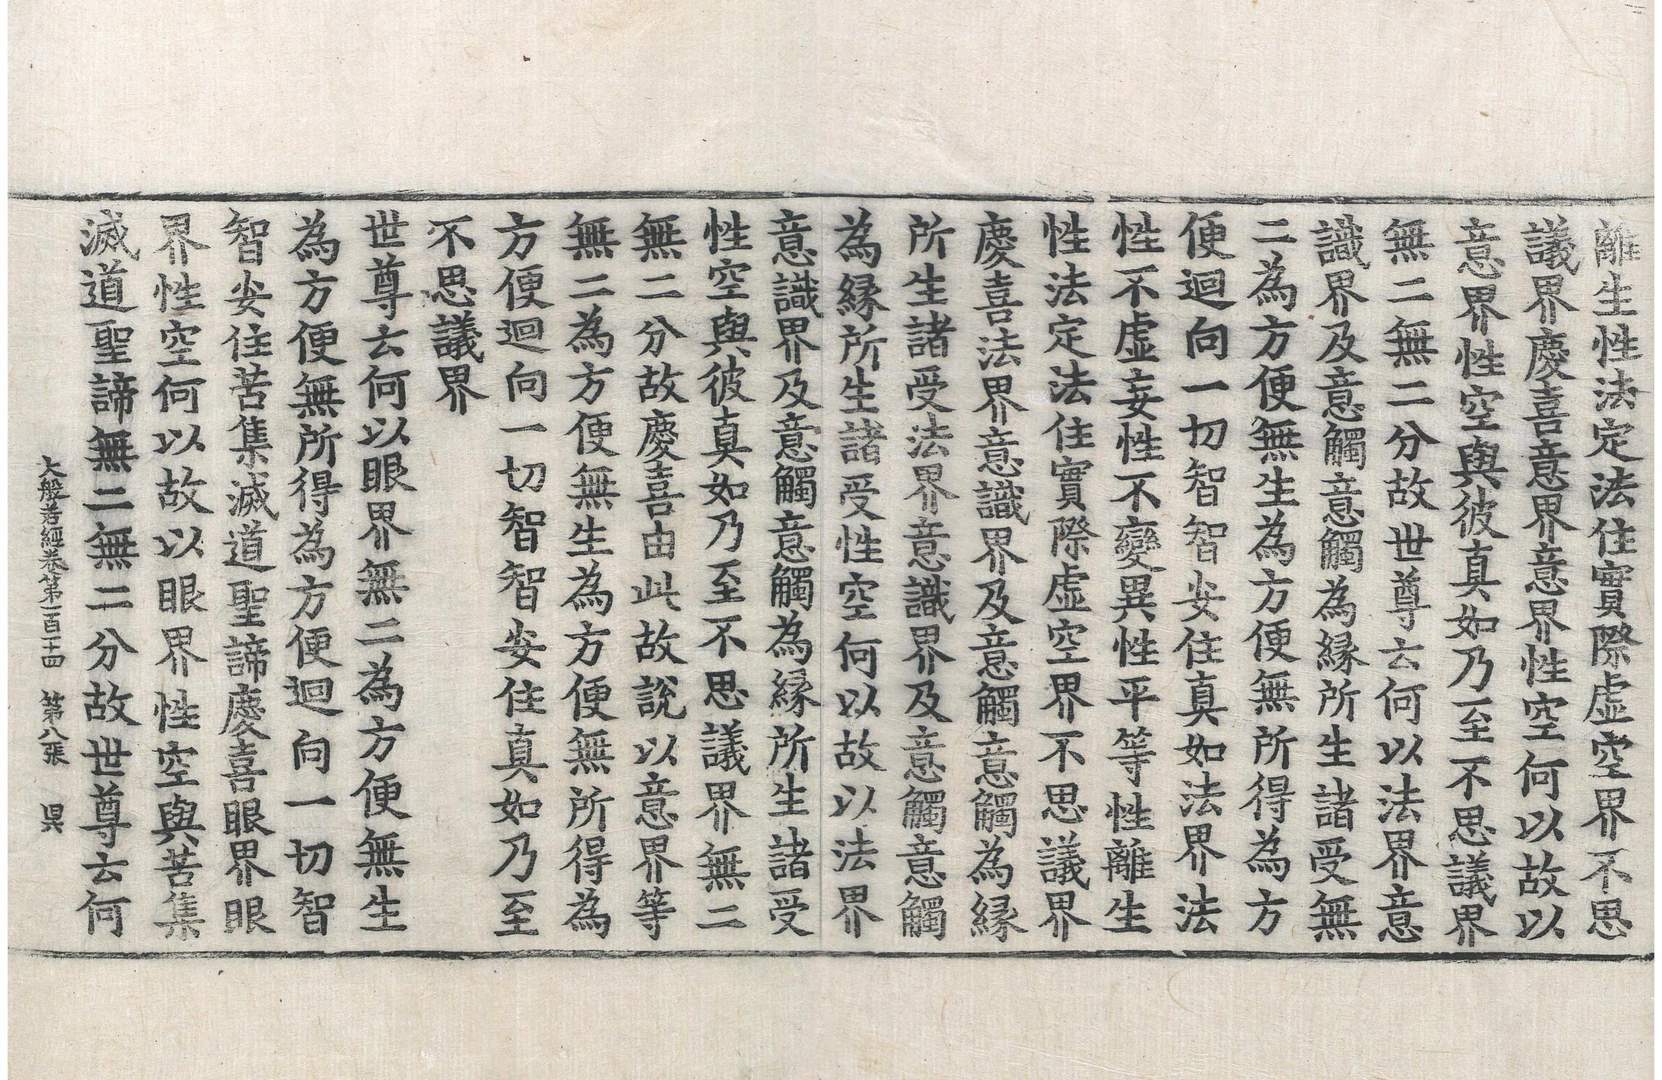 離生性法定法住實際虛空界不思
議界慶喜意界意界性空何以故以
意界性空與彼真如乃至不思議界
無二無二分故世尊云何以法界意
識界及意觸意觸為縁所生諸受無
二為方便無生為方便無所得為方
便迴向一切智智安住真如法界法
性不虛妄性不變異性平等性離生
性法定法住實際虛空界不思議界
慶喜法界意識界及意觸意觸為縁
所生諸受法界意識界及意觸意觸
為縁所生諸受性空何以故以法界
意識界及意觸意觸為縁所生諸受
性空與彼真如乃至不思議界無二
無二分故慶喜由此故說以意界等
無二為方便無生為方便無所得為
方便迴向一切智智安住真如乃至
不思議界
世尊云何以眼界無二為方便無生
為方便無所得為方便迴向一切智
智安住苦集滅道聖諦慶喜眼界眼
界性空何以故以眼界性空與苦集
滅道聖諦無二無二分故世尊云何
大般若經卷第一百一十四 第八張 昃